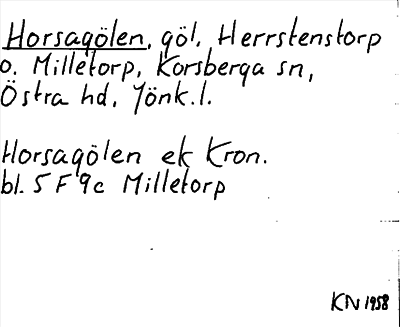 Horsagölen, göl, Herrstenstorp
o. Milletorp, Korsberga sn,
Östra hd, Jönk.l.
Horsagölen ek Kron.
bl. 5 F 9c Milletorp
KN 1958